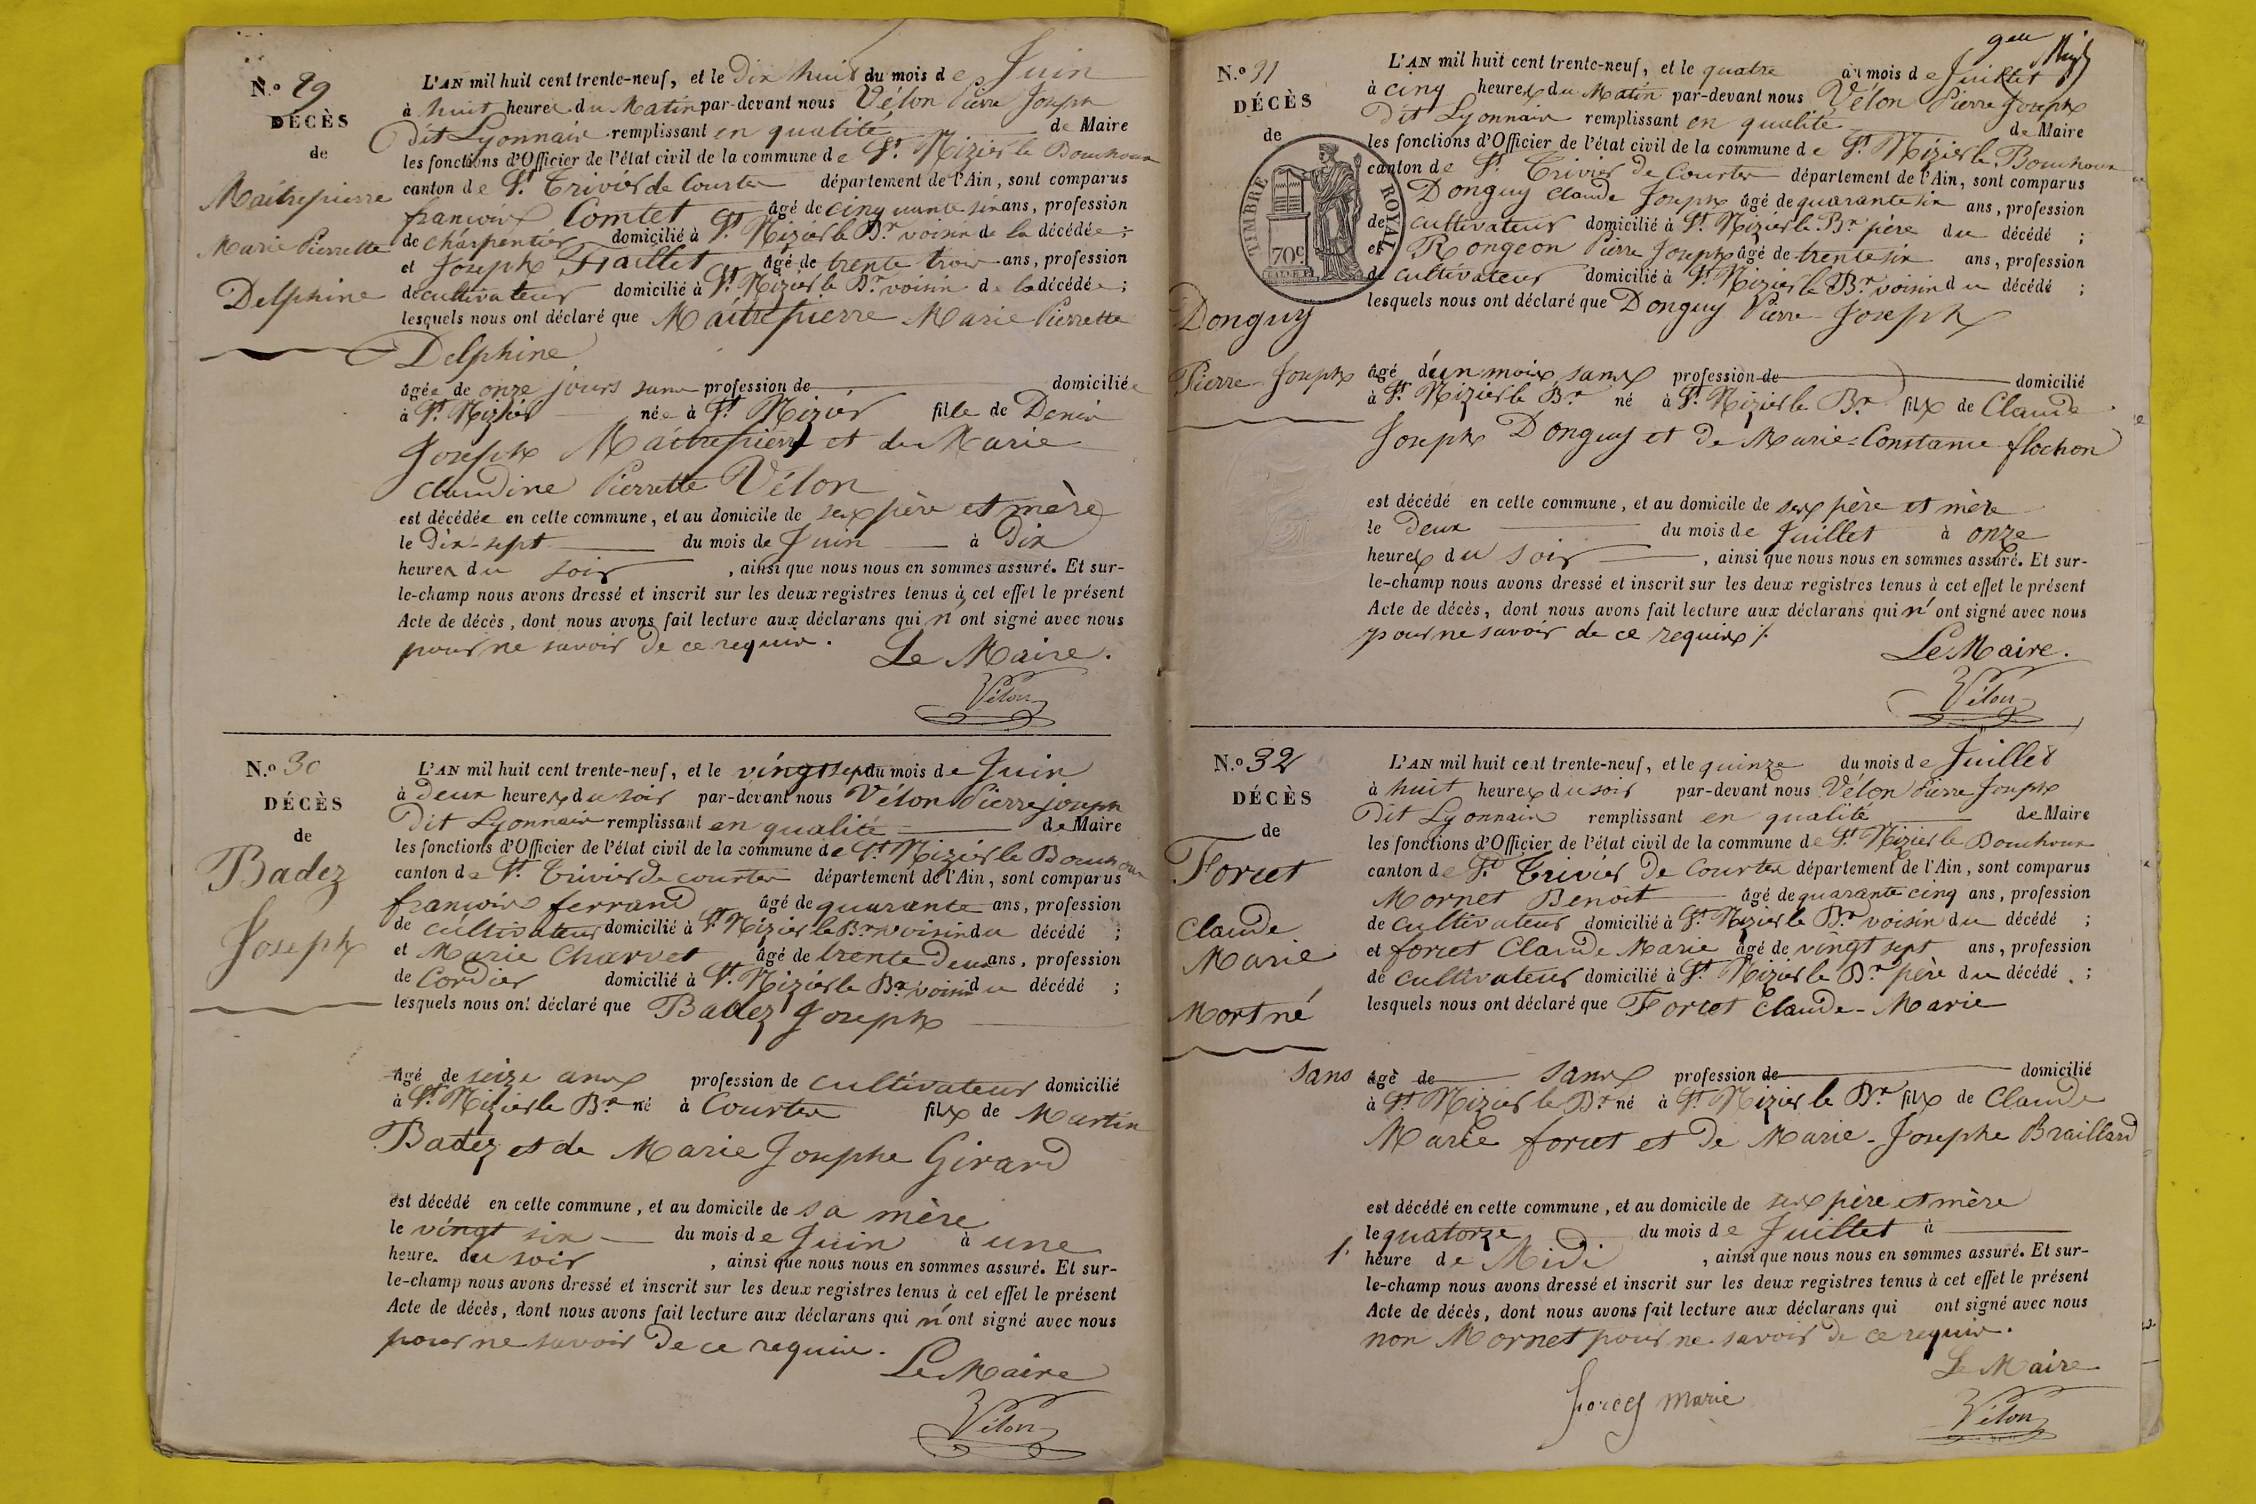 N.º 29
DÉCÈS
de
Maitrepierre
Marie Pierrette
Delphine
L'AN mil huit cent trente-neuf, et le dix huit du mois de Juin
à huit heures du Matin par-devant nous Vélon Pierre Joseph
Dit Lyonnais remplissant en qualité de Maire
les fonctions d'Officier de l'état civil de la commune de St. Nizier le Bouchoux
canton de St. Trivier de Courtes département de l'Ain, sont comparus
françois Comtet âgé de cinquante six ans, profession
de charpentier domicilié à St. Nizier le Bx. voisin de la décédée ;
et Joseph âgé de trente trois ans, profession
de cultivateur domicilié à St. Nizier le Bx. voisin de la décédée ;
lesquels nous ont déclaré que Maitrepierre Marie Pierrette
Delphine
âgée de onze jours sans profession de domiciliée
à St. Nizier née à St. Nizier fille de Denis
Joseph Maitrepierre et de Marie
Claudine Pierrette Vélon
est décédée en cette commune, et au domicile de ses père et mère
le Dix-sept du mois de Juin à Dix
heures du soir , ainsi que nous nous en sommes assuré. Et sur-
le-champ nous avons dressé et inscrit sur les deux registres tenus à cet effet le présent
Acte de décès, dont nous avons fait lecture aux déclarans qui n'ont signé avec nous
pour ne savoir de ce requis.
Le Maire.
Vélon
N.º 30
DÉCÈS
de
Badez
Joseph
L'AN mil huit cent trente-neuf, et le vingt sept du mois de Juin
à deux heures du soir par-devant nous Vélon Pierre joseph
Dit Lyonnais remplissant en qualité de Maire
les fonctions d'Officier de l'état civil de la commune de St. Nizier le Bouchoux
canton de St. Trivier de courtes département de l'Ain, sont comparus
francois ferrand âgé de quarante ans, profession
de cultivateur domicilié à St. Nizier le Bx. voisin du décédé ;
et Marie Charvet âgé de trente Deux ans, profession
de Cordier domicilié à St. Nizier le Bx. voisin du décédé ;
lesquels nous ont déclaré que Badez Joseph
âgé de seize ans profession de cultivateur domicilié
à St. Nizier le Bx. né à Courtes fils de Martin
Badez et de Marie Josephe Girard
est décédé en cette commune, et au domicile de sa mère
le vingt six du mois de Juin à une
heure du soir , ainsi que nous nous en sommes assuré. Et sur-
le-champ nous avons dressé et inscrit sur les deux registres tenus à cet effet le présent
Acte de décès, dont nous avons fait lecture aux déclarans qui n'ont signé avec nous
pour ne savoir de ce requis.
Le Maire
Vélon
N.º 31
DÉCÈS
de
TIMBRE ROYAL
70c
Donguy
Pierre-Joseph
L'AN mil huit cent trente-neuf, et le quatre du mois de Juillet
à cinq heures du Matin par-devant nous Vélon Pierre Joseph
Dit Lyonnais remplissant en qualité de Maire
les fonctions d'Officier de l'état civil de la commune de St. Nizier le Bouchoux
canton de St. Trivier de Courtes département de l'Ain, sont comparus
Donguy Claude Joseph âgé de quarante six ans, profession
de cultivateur domicilié à St. Nizier le Bx. père du décédé ;
et Rongeon Pierre Joseph âgé de trente six ans, profession
de cultivateur domicilié à St. Nizier le Bx. voisin du décédé ;
lesquels nous ont déclaré que Donguy Pierre-Joseph
âgé d'un mois sans profession de domicilié
à St. Nizier le Bx. né à St. Nizier le Bx. fils de Claude
Joseph Donguy et de Marie-Constance flochon
est décédé en cette commune, et au domicile de ses père et mère
le deux du mois de Juillet à onze
heures du soir , ainsi que nous nous en sommes assuré. Et sur-
le-champ nous avons dressé et inscrit sur les deux registres tenus à cet effet le présent
Acte de décès, dont nous avons fait lecture aux déclarans qui n'ont signé avec nous
pour ne savoir de ce requis
Le Maire.
Vélon
N.º 32
DÉCÈS
de
Forcet
Claude
Marie
Mort né
L'AN mil huit cent trente-neuf, et le quinze du mois de Juillet
à huit heures du soir par-devant nous Vélon Pierre Joseph
Dit Lyonnais remplissant en qualité de Maire
les fonctions d'Officier de l'état civil de la commune de St. Nizier le Bouchoux
canton de St. Trivier de Courtes département de l'Ain, sont comparus
Mornet Benoit âgé de quarante cinq ans, profession
de cultivateur domicilié à St. Nizier le Bx. voisin du décédé ;
et forcet Claude Marie âgé de vingt sept ans, profession
de cultivateur domicilié à St. Nizier le Bx. père du décédé ;
lesquels nous ont déclaré que Forcet Claude-Marie
sans âgé de sans profession de domicilié
à St. Nizier le Bx. né à St. Nizier le Bx. fils de Claude
Marie forcet et de Marie-Josephe Braillard
est décédé en cette commune, et au domicile de ses père et mère
le quatorze du mois de Juillet à
1. heure de Midi , ainsi que nous nous en sommes assuré. Et sur-
le-champ nous avons dressé et inscrit sur les deux registres tenus à cet effet le présent
Acte de décès, dont nous avons fait lecture aux déclarans qui ont signé avec nous
non Mornet pour ne savoir de ce requis.
Le Maire
forcet marie
Vélon